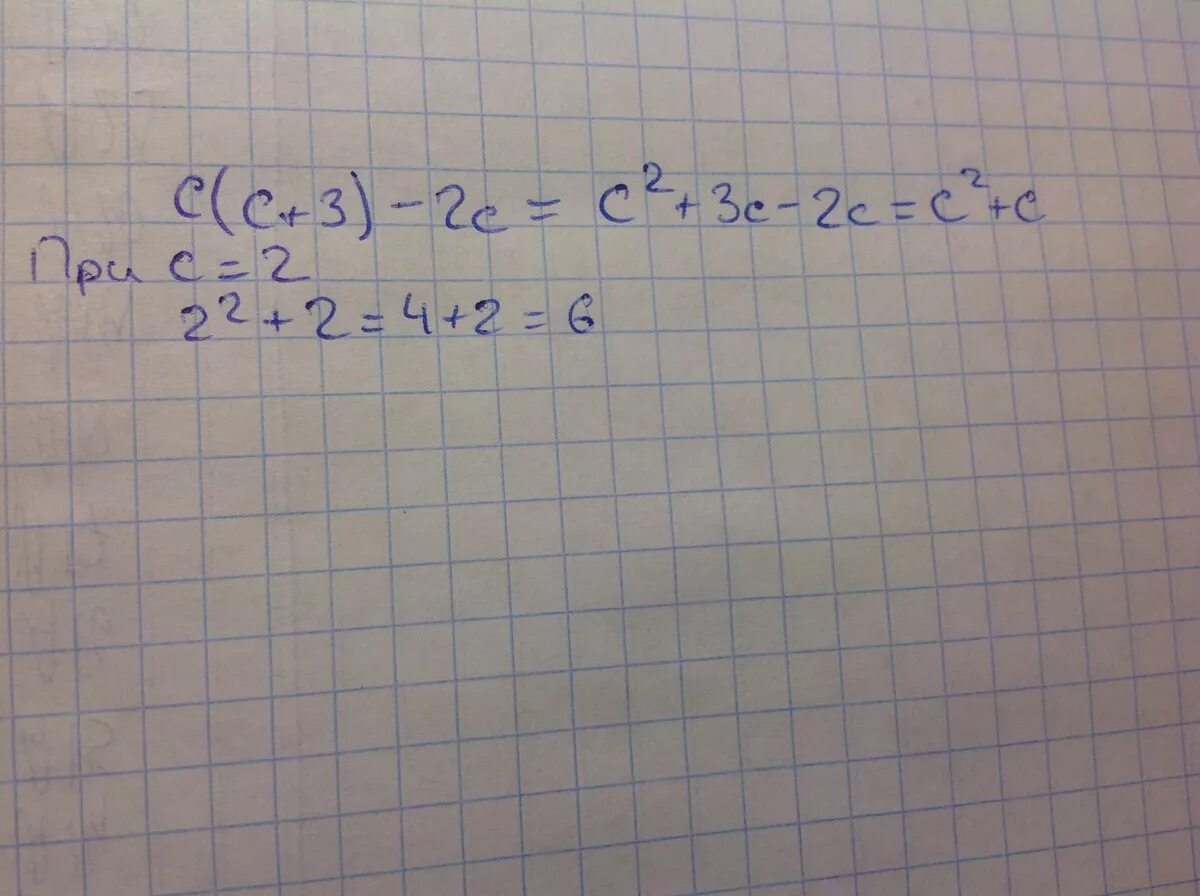 c(c+3)-2c = c²+3c-2c = c²+c
При c = 2
2²+2 = 4+2 = 6